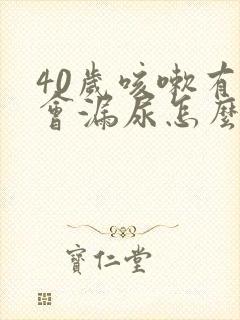 40歲咳嗽有
會漏尿怎麼
寶仁堂